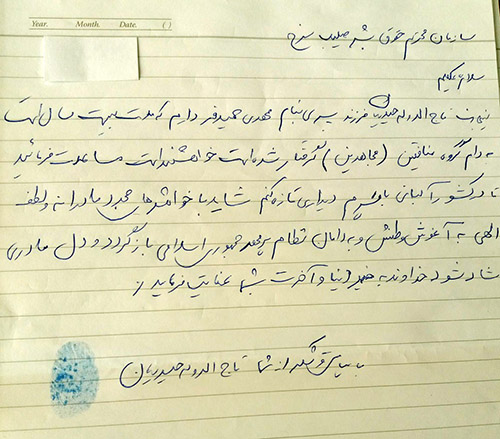 Year. Month. Date. ( )
سازمان محترم حقوق بشر صلیب سرخ
سلام علیکم
اینجانب تاج الدوله حیدریان فرزند پسری بنام مهدی حمیدفر دارم که مدت بیست سال است
به دام گروه منافقین (مجاهدین) گرفتار شده است خواهشمند است مساعدت فرمائید
تا در کشور آلبانی با پسرم دیداری تازه کنم شاید با خواهش های مجدد مادرانه و لطف
الهی به آغوش وطنش و به دامان نظام پر مهر جمهوری اسلامی باز گردد و دل مادری
شاد شود خداوند به خیر دنیا و آخرت شما عنایت فرماید.
با سپاس و تشکر از شما تاج الدوله حیدریان